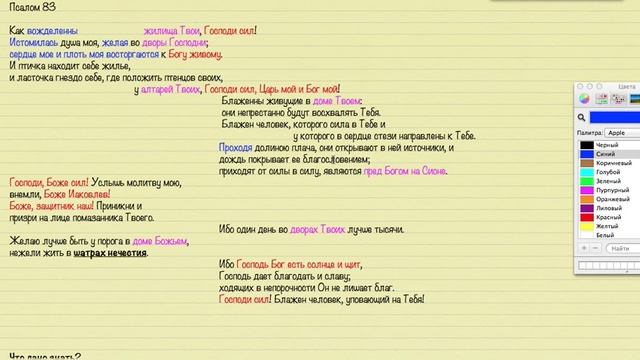 Псалом 83
Как вожделенны жилища Твои, Господи сил!
Истомилась душа моя, желая во дворы Господни;
сердце мое и плоть моя восторгаются к Богу живому.
И птичка находит себе жилье,
и ласточка гнездо себе, где положить птенцов своих,
у алтарей Твоих, Господи сил, Царь мой и Бог мой!
Блаженны живущие в доме Твоем:
они непрестанно будут восхвалять Тебя.
Блажен человек, которого сила в Тебе и
у которого в сердце стези направлены к Тебе.
Проходя долиною плача, они открывают в ней источники, и
дождь покрывает ее благословением;
приходят от силы в силу, являются пред Богом на Сионе.
Господи, Боже сил! Услышь молитву мою,
внемли, Боже Иаковлев!
Боже, защитник наш! Приникни и
призри на лице помазанника Твоего.
Ибо один день во дворах Твоих лучше тысячи.
Желаю лучше быть у порога в доме Божьем,
нежели жить в шатрах нечестия.
Ибо Господь Бог есть солнце и щит,
Господь дает благодать и славу;
ходящих в непорочности Он не лишает благ.
Господи сил! Блажен человек, уповающий на Тебя!
Что дано знать?
Цвета
Палитра: Apple
Черный
Синий
Коричневый
Голубой
Зеленый
Пурпурный
Оранжевый
Лиловый
Красный
Желтый
Белый
Найти